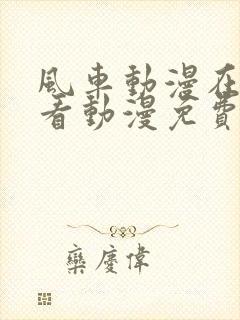 風車動漫在
看動漫免費
欒慶偉